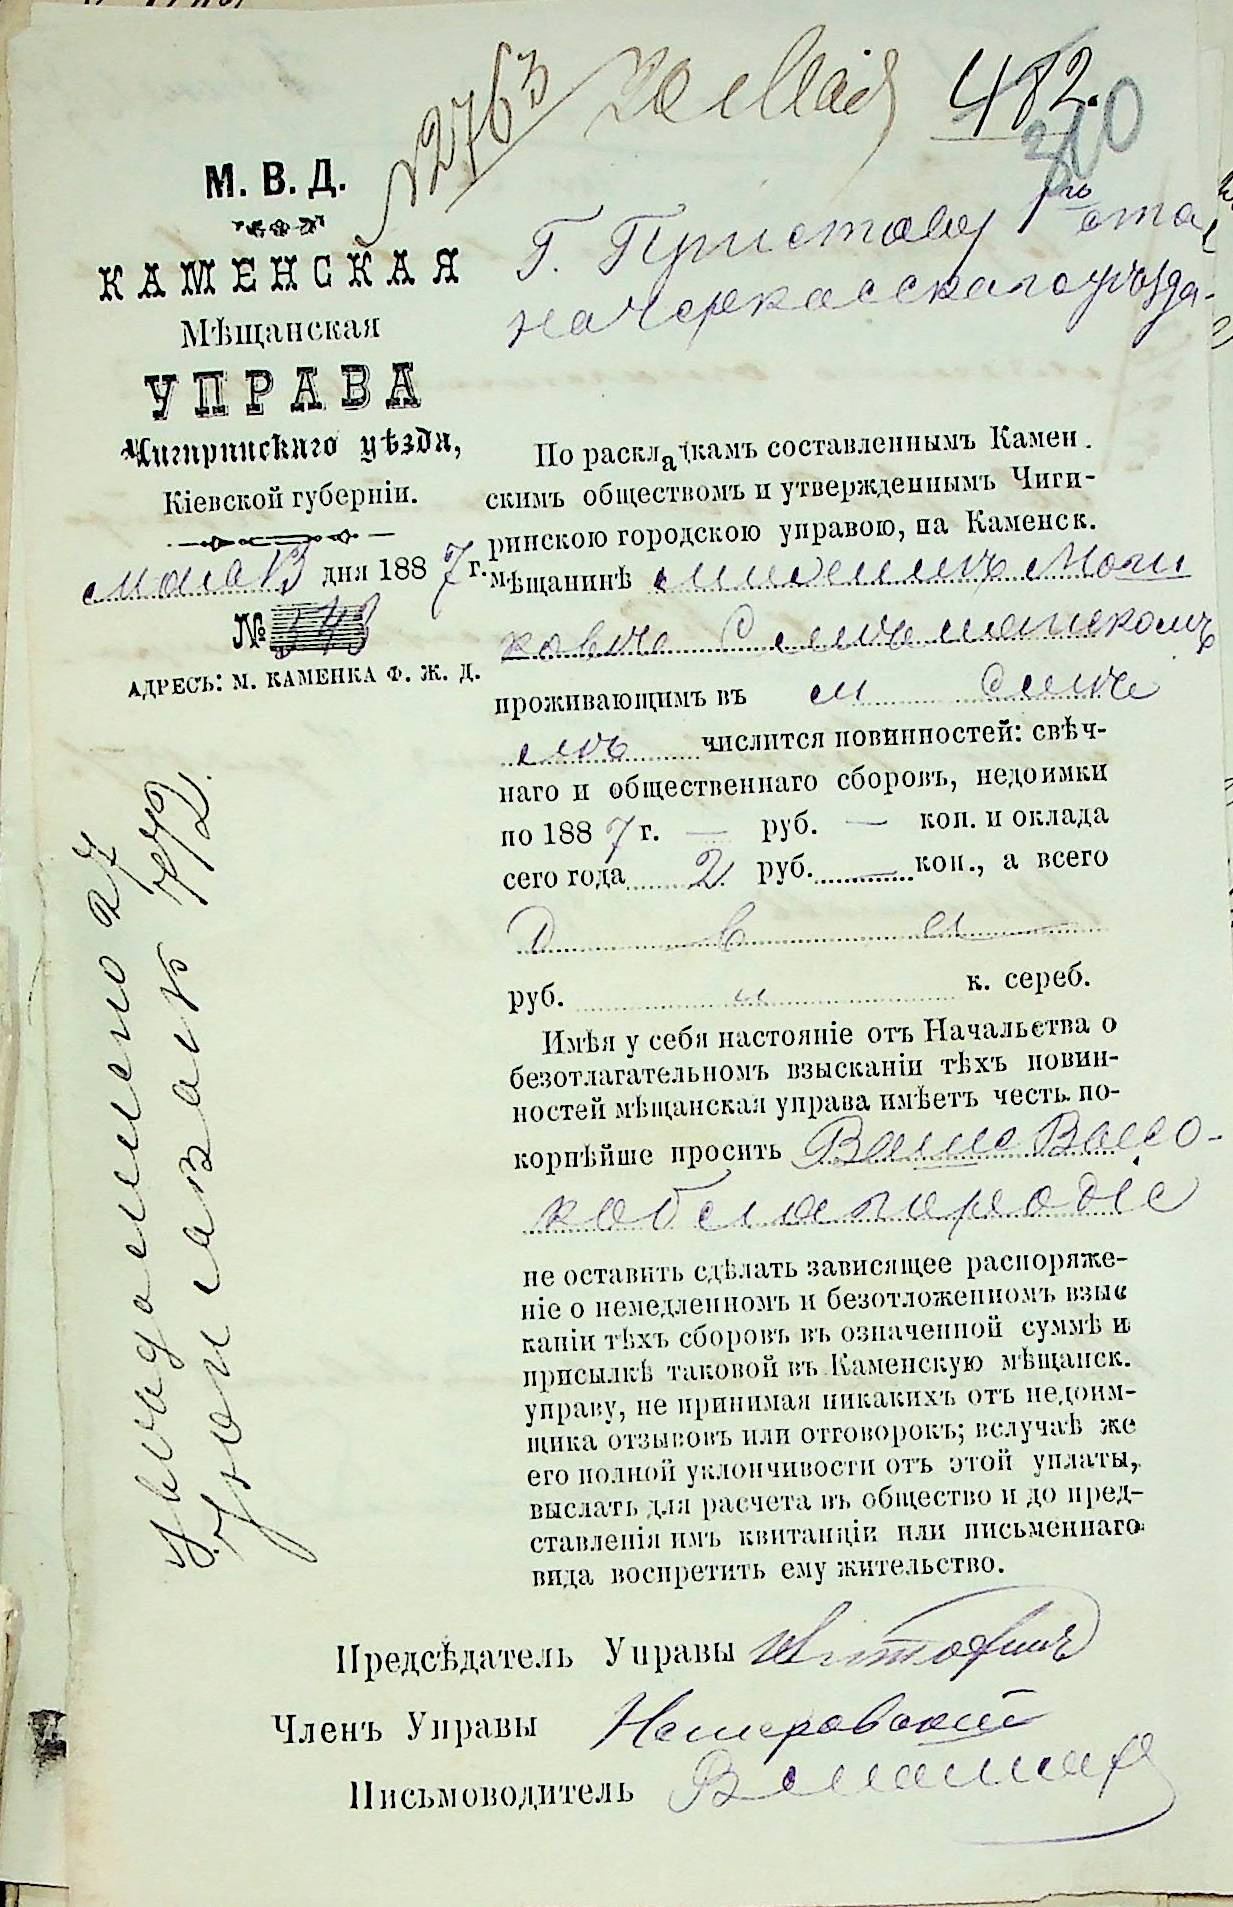 № 2763
20 Мая
482.
310
М. В. Д.
КАМЕНСКАЯ
Мѣщанская
УПРАВА
Чигиринскаго уѣзда,
Кіевской губерніи.
мая 13 дня 1887 г.
№ 543
АДРЕСЪ: М. КАМЕНКА Ф. Ж. Д.
Г. Приставу 1го стана
Черкасскаго уѣзда
По раскладкамъ составленнымъ Камен.
скимъ обществомъ и утвержденнымъ Чиги-
ринскою городскою управою, на Каменск.
мѣщанинѣ
проживающимъ въ м Смѣ
числится повинностей: свѣч-
наго и общественнаго сборовъ, недоимки
по 1887 г. — руб. — коп. и оклада
сего года 2 руб. — коп., а всего
Два
руб. к. сереб.
Имѣя у себя настояніе отъ Начальства о
безотлагательномъ взысканіи тѣхъ повин-
ностей мѣщанская управа имѣетъ честь по-
корнѣйше просить Ваше Высо-
коблагородіе
не оставить сдѣлать зависящее распоряже-
ніе о немедленномъ и безотложенномъ взыс
каніи тѣхъ сборовъ въ означенной суммѣ и
присылкѣ таковой въ Каменскую мѣщанск.
управу, не принимая никакихъ отъ недоим-
щика отзывовъ или отговорокъ; вслучаѣ же
его полной уклончивости отъ этой уплаты,
выслать для расчета въ общество и до пред-
ставленія имъ квитанціи или письменнаго
вида воспретить ему жительство.
Предсѣдатель Управы
Членъ Управы
Письмоводитель